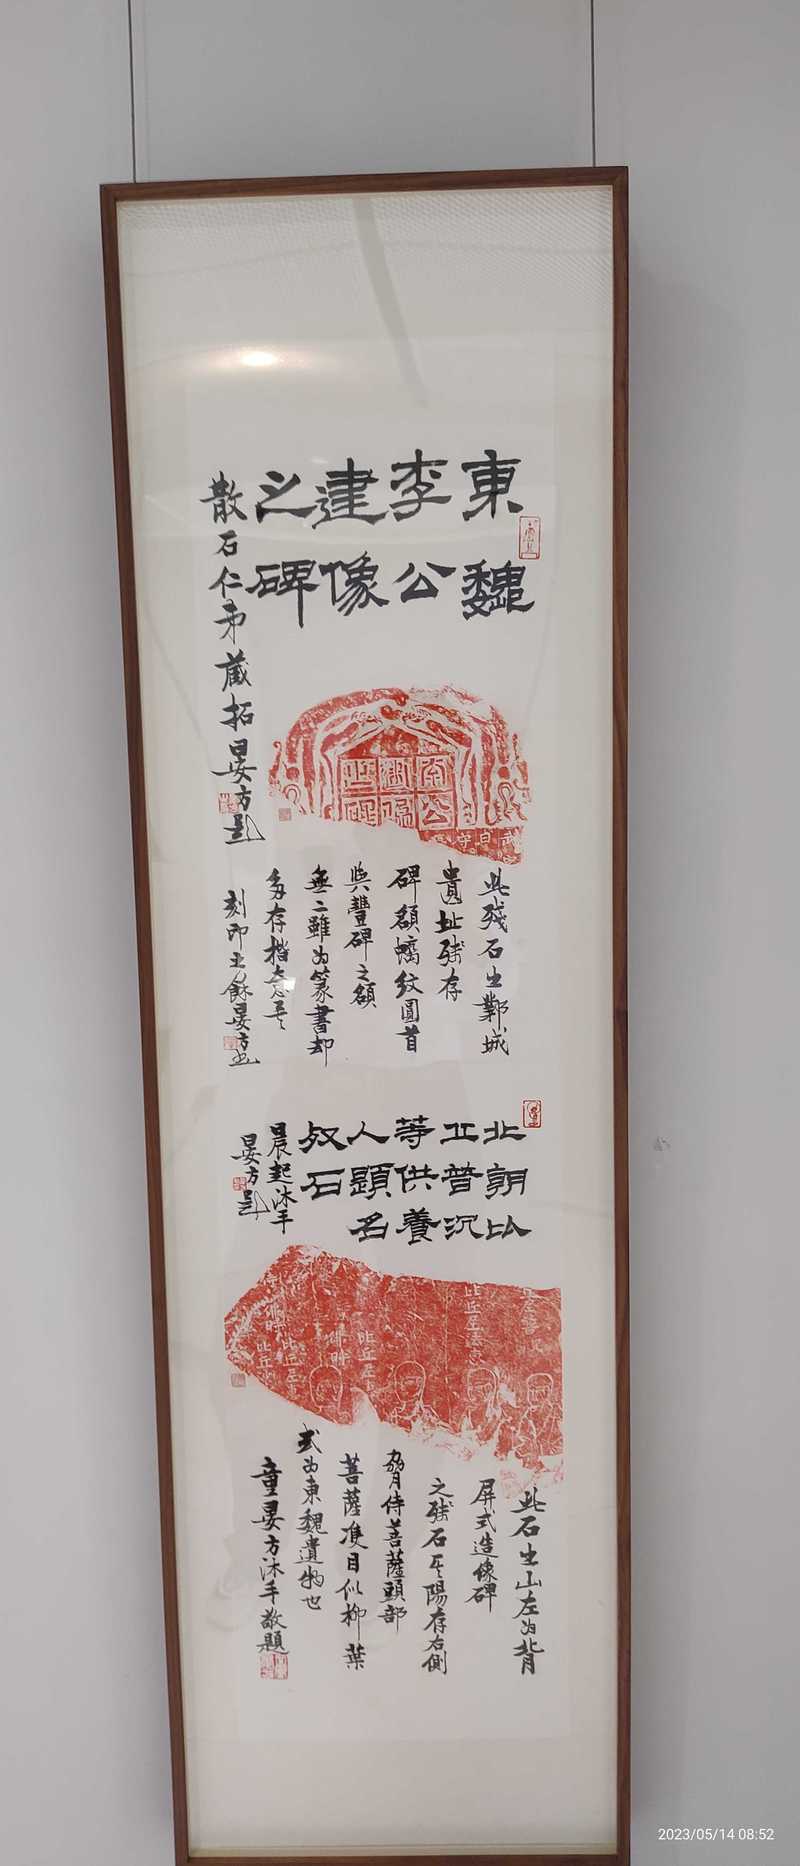 東魏
李公
建像
之碑
散石仁弟藏拓晏方題
此殘石出鄴城
遺址殘存
碑額螭紋圓首
與豐碑之額
無二雖為篆書却
多存楷意
刻印
晏方
北朝比
丘普沉
等供養
人題名
殘石
晨起沐手
晏方題
比丘
比丘
比丘
此石出山左為背
屏式造像碑
之殘石其陽存右側
脅侍菩薩頭部
菩薩雙目似柳葉
式為東魏遺物也
童晏方沐手敬題
2023/05/14 08:52